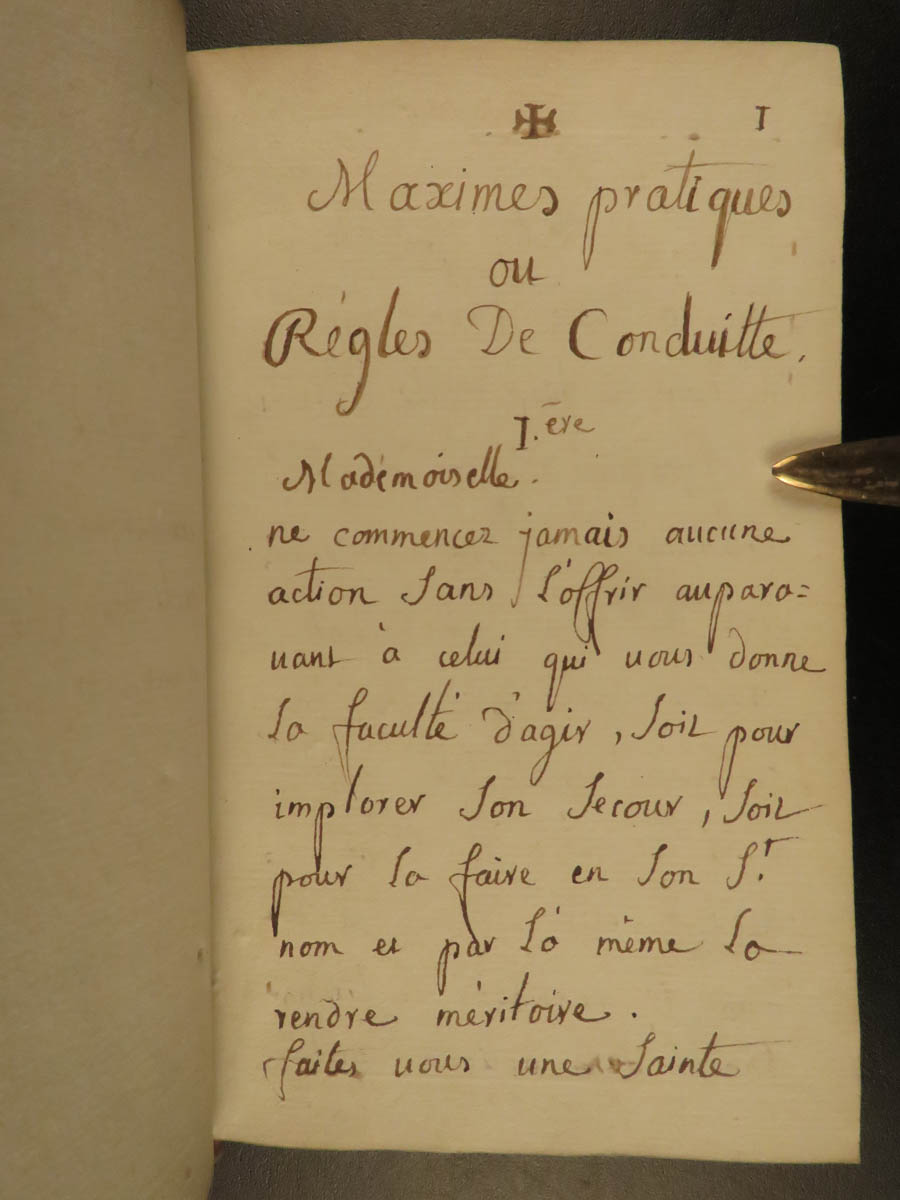 ✠ I
Maximes pratiques
ou
Régles De Conduitte.
I.ere
Madémoiselle.
ne commencez jamais aucune
action sans l'offrir aupara=
uant à celui qui uous donne
la faculté d'agir, soit pour
implorer son secour, soit
pour la faire en son St.
nom et par là même la
rendre méritoire.
faites uous une sainte